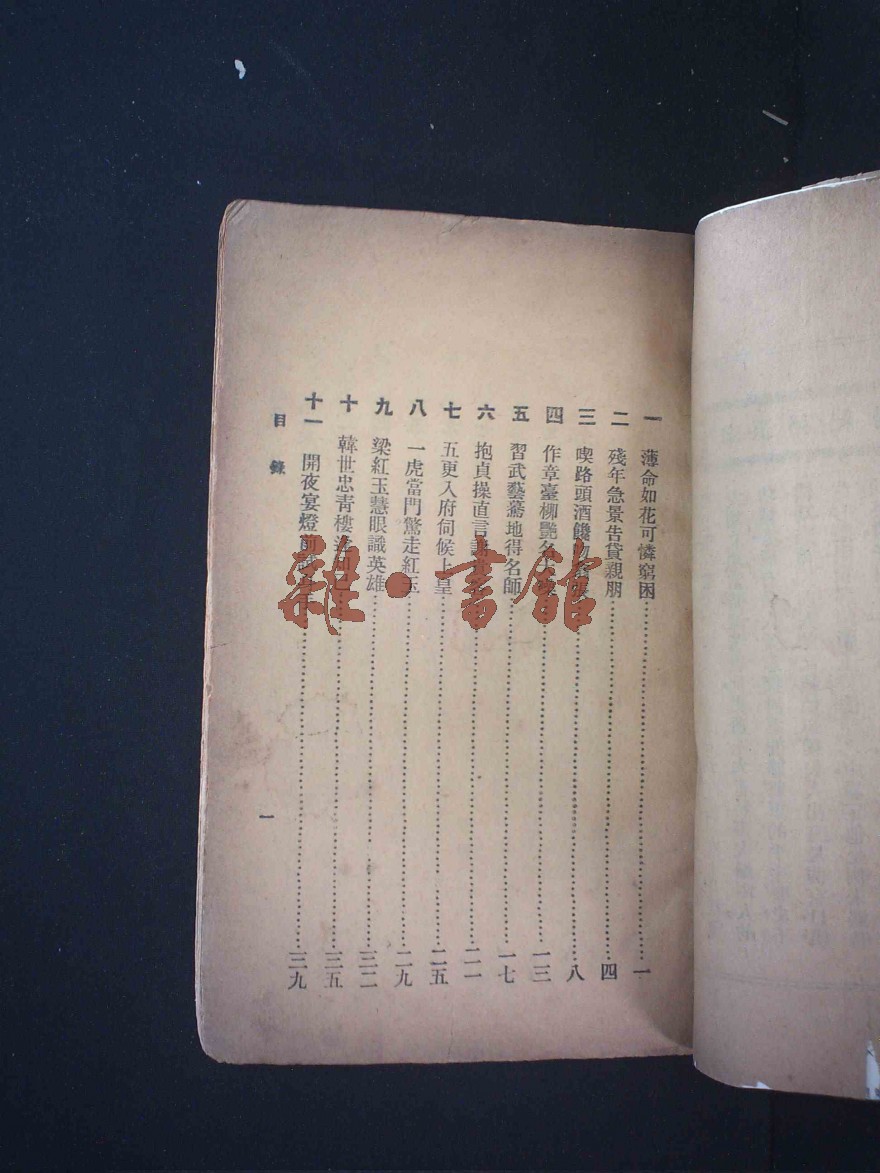 一 薄命如花可憐窮困……一
二 殘年急景告貸親朋……四
三 喫路頭酒饞……八
四 作章臺柳艷名……一三
五 習武藝驀地得名師……一七
六 抱貞操直言……二一
七 五更入府伺候上皇……二五
八 一虎當門驚走紅玉……二九
九 梁紅玉慧眼識英雄……三二
十 韓世忠靑樓逢知己……三五
十一 開夜宴燈前試……三九
目錄
一
雜·書館